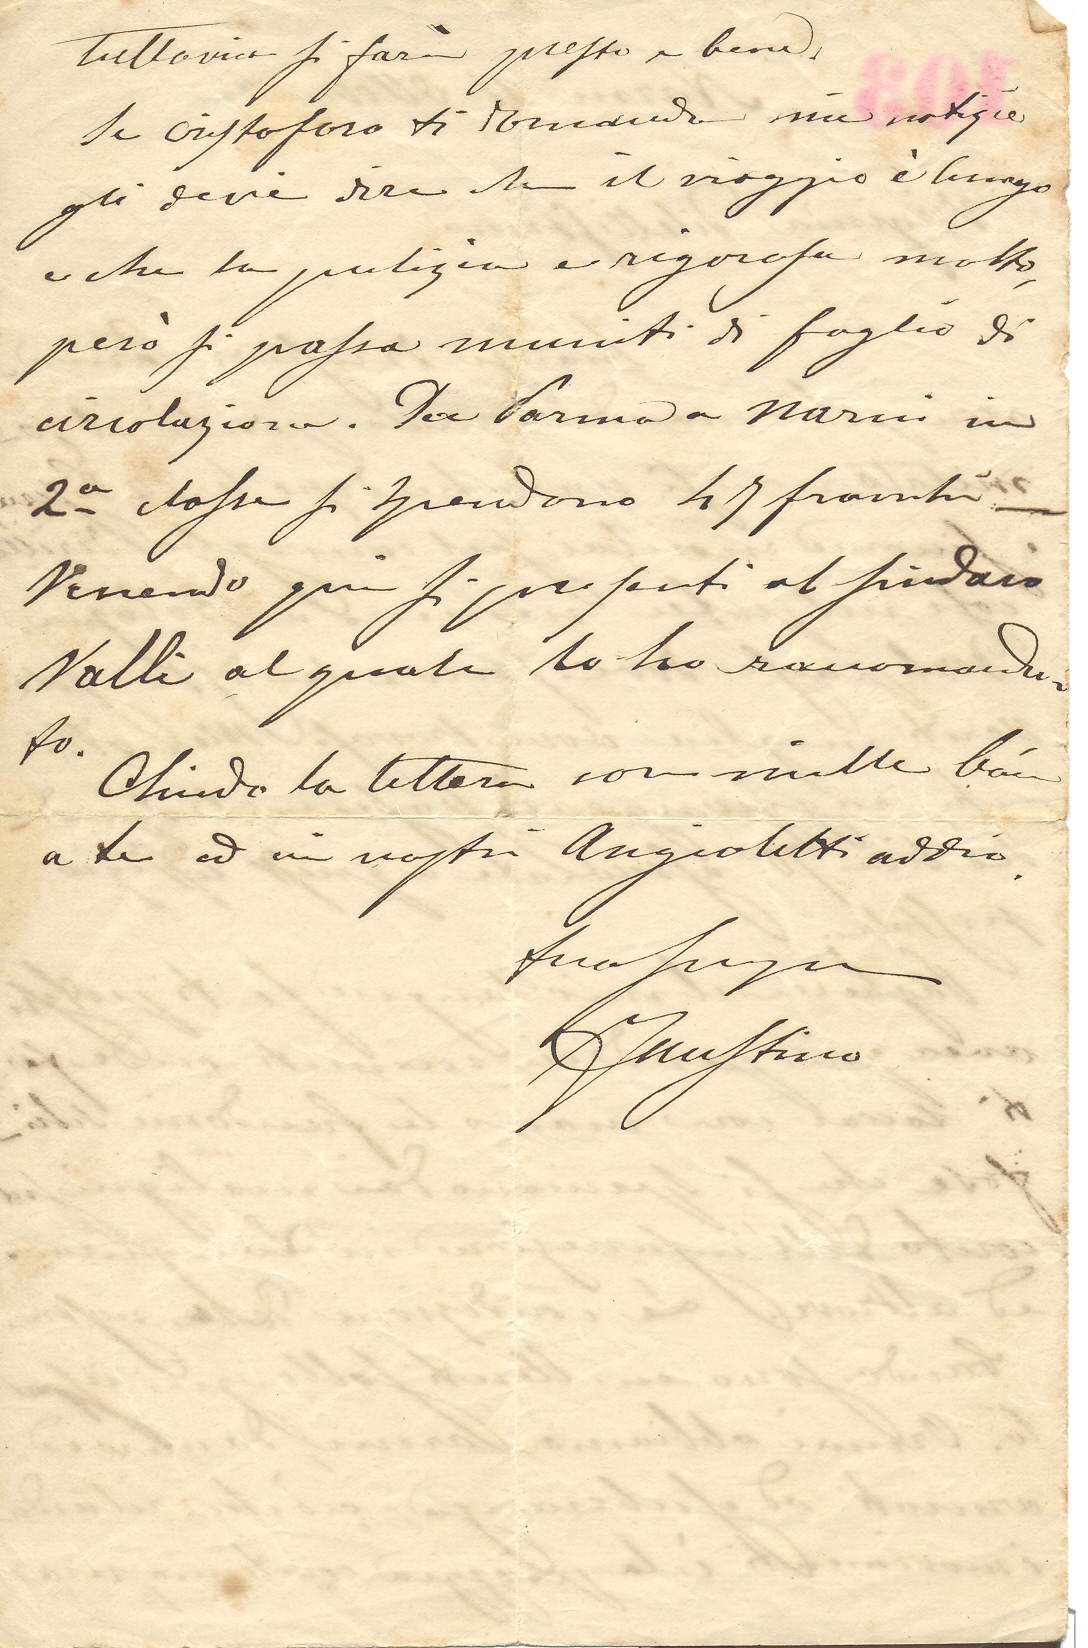 Tuttavia si farà presto e bene.
Se Cristoforo ti domanda mie notizie
gli devi dire che il viaggio è lungo
e che la pulizia e rigorosa molto,
però si passa muniti di foglio di
circolazione. Da Parma a Narni in
2ª classe si spendono 47 franchi
Venendo qui si presenti al sindaco
Valli al quale lo ho racomanda-
to.
Chiudo la lettera con mille baci
a te ed ai nostri Angioletti addio.
tuo
Faustino